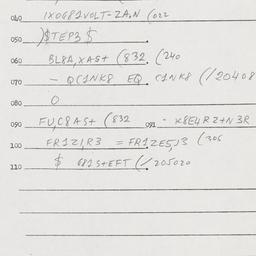 040 IXOG81VOLT-ZA,N (022
050 )$TEP3 $
060 BL8A,XAS+ (832 (240
070 - QC1NK8 EQ C1NK8 (/20408
080 O
090 FU,C8AS+ (832 091 - K8E4R2+N3R
100 FR1Z1,R3 = FR1ZE5,13 (306
110 $ 681S+EFT (/205020